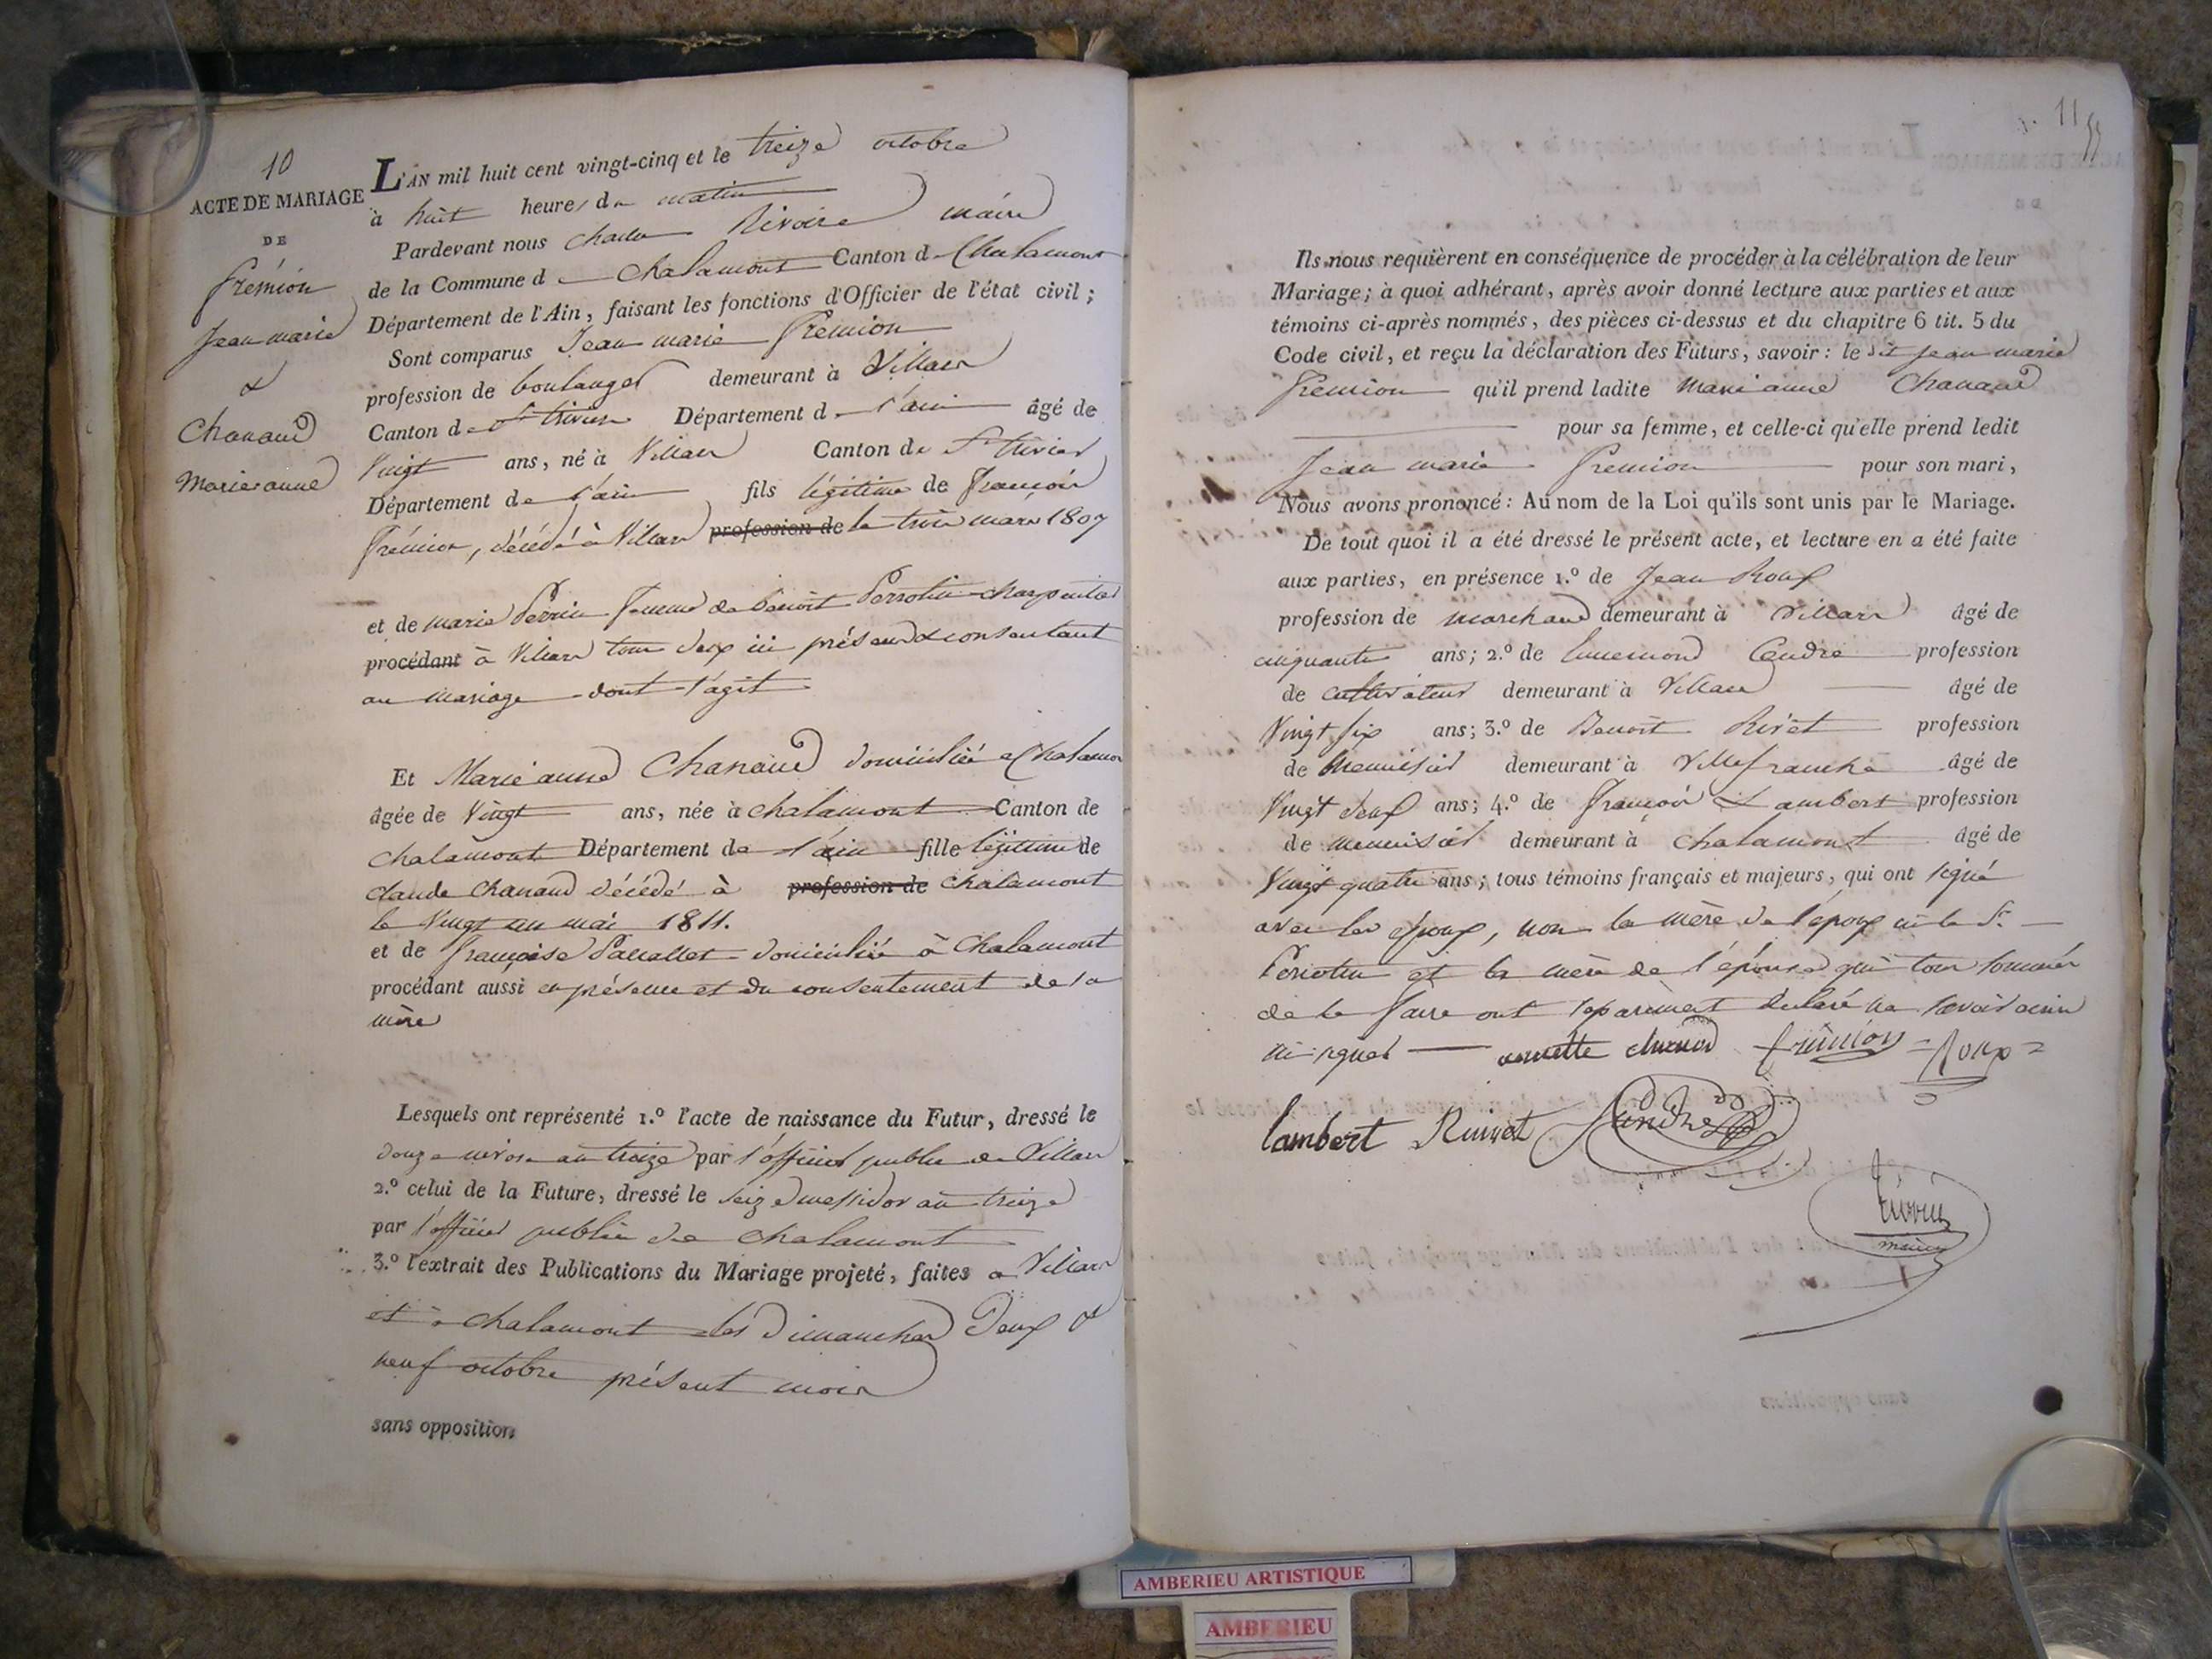 10
ACTE DE MARIAGE
DE
Frémion
Jean marie
&
Chanaud
Marie anne
L'AN mil huit cent vingt-cinq et le treize octobre
à huit heures du matin
Pardevant nous Rivoire maire
de la Commune de Chalamont Canton de Chalamont
Département de l'Ain, faisant les fonctions d'Officier de l'état civil;
Sont comparus Jean marie Fremion
profession de boulanger demeurant à Villars
Canton de St trivier Département de l'ain âgé de
Vingt ans, né à Villars Canton de St trivier
Département de l'ain fils légitime de françois
Frémion, décédé à Villars profession de le trois mars 1807
et de marie Perrin femme de benoit Perrotin charpentier
procédant à Villars tous deux ici présens & consentant
au mariage dont s'agit
Et Marie anne Chanaud domiciliée a Chalamon
âgée de Vingt ans, née à chalamont Canton de
chalamont Département de l'ain fille légitime de
claude chanaud décédé à profession de chalamont
le Vingt un mai 1811.
et de françoise domiciliée à Chalamont
procédant aussi en présence et du consentement de sa
mère
Lesquels ont représenté 1.º l'acte de naissance du Futur, dressé le
douze nivose an treize par l'officier public de Villars
2.º celui de la Future, dressé le seize messidor an treize
par l'officier public de chalamont
3.º l'extrait des Publications du Mariage projeté, faites a Villars
et à chalamont les Dimanches Deux &
neuf octobre présent mois
sans opposition
11
Ils nous requièrent en conséquence de procéder à la célébration de leur
Mariage; à quoi adhérant, après avoir donné lecture aux parties et aux
témoins ci-après nommés, des pièces ci-dessus et du chapitre 6 tit. 5 du
Code civil, et reçu la déclaration des Futurs, savoir: le dit jean marie
Fremion qu'il prend ladite Marie anne Chanaud
pour sa femme, et celle-ci qu'elle prend ledit
Jean marie Fremion pour son mari,
Nous avons prononcé: Au nom de la Loi qu'ils sont unis par le Mariage.
De tout quoi il a été dressé le présent acte, et lecture en a été faite
aux parties, en présence 1.º de Jean Roux
profession de marchand demeurant à Villars âgé de
cinquante ans; 2.º de profession
de cultivateur demeurant à Villars âgé de
Vingt six ans; 3.º de Benoit Rivet profession
de Menuisier demeurant à Villefranche âgé de
Vingt deux ans; 4.º de François Lambert profession
de menuisier demeurant à chalamont âgé de
Vingt quatre ans; tous témoins français et majeurs, qui ont signé
avec les époux, non la mère de l'époux ni le Sr
Perrotin et la mère de l'épouse qui tous sommés
de le faire ont séparément declaré ne savoir ecrire
ni signer frémion Roux
lambert
maire
AMBERIEU ARTISTIQUE
AMBERIEU